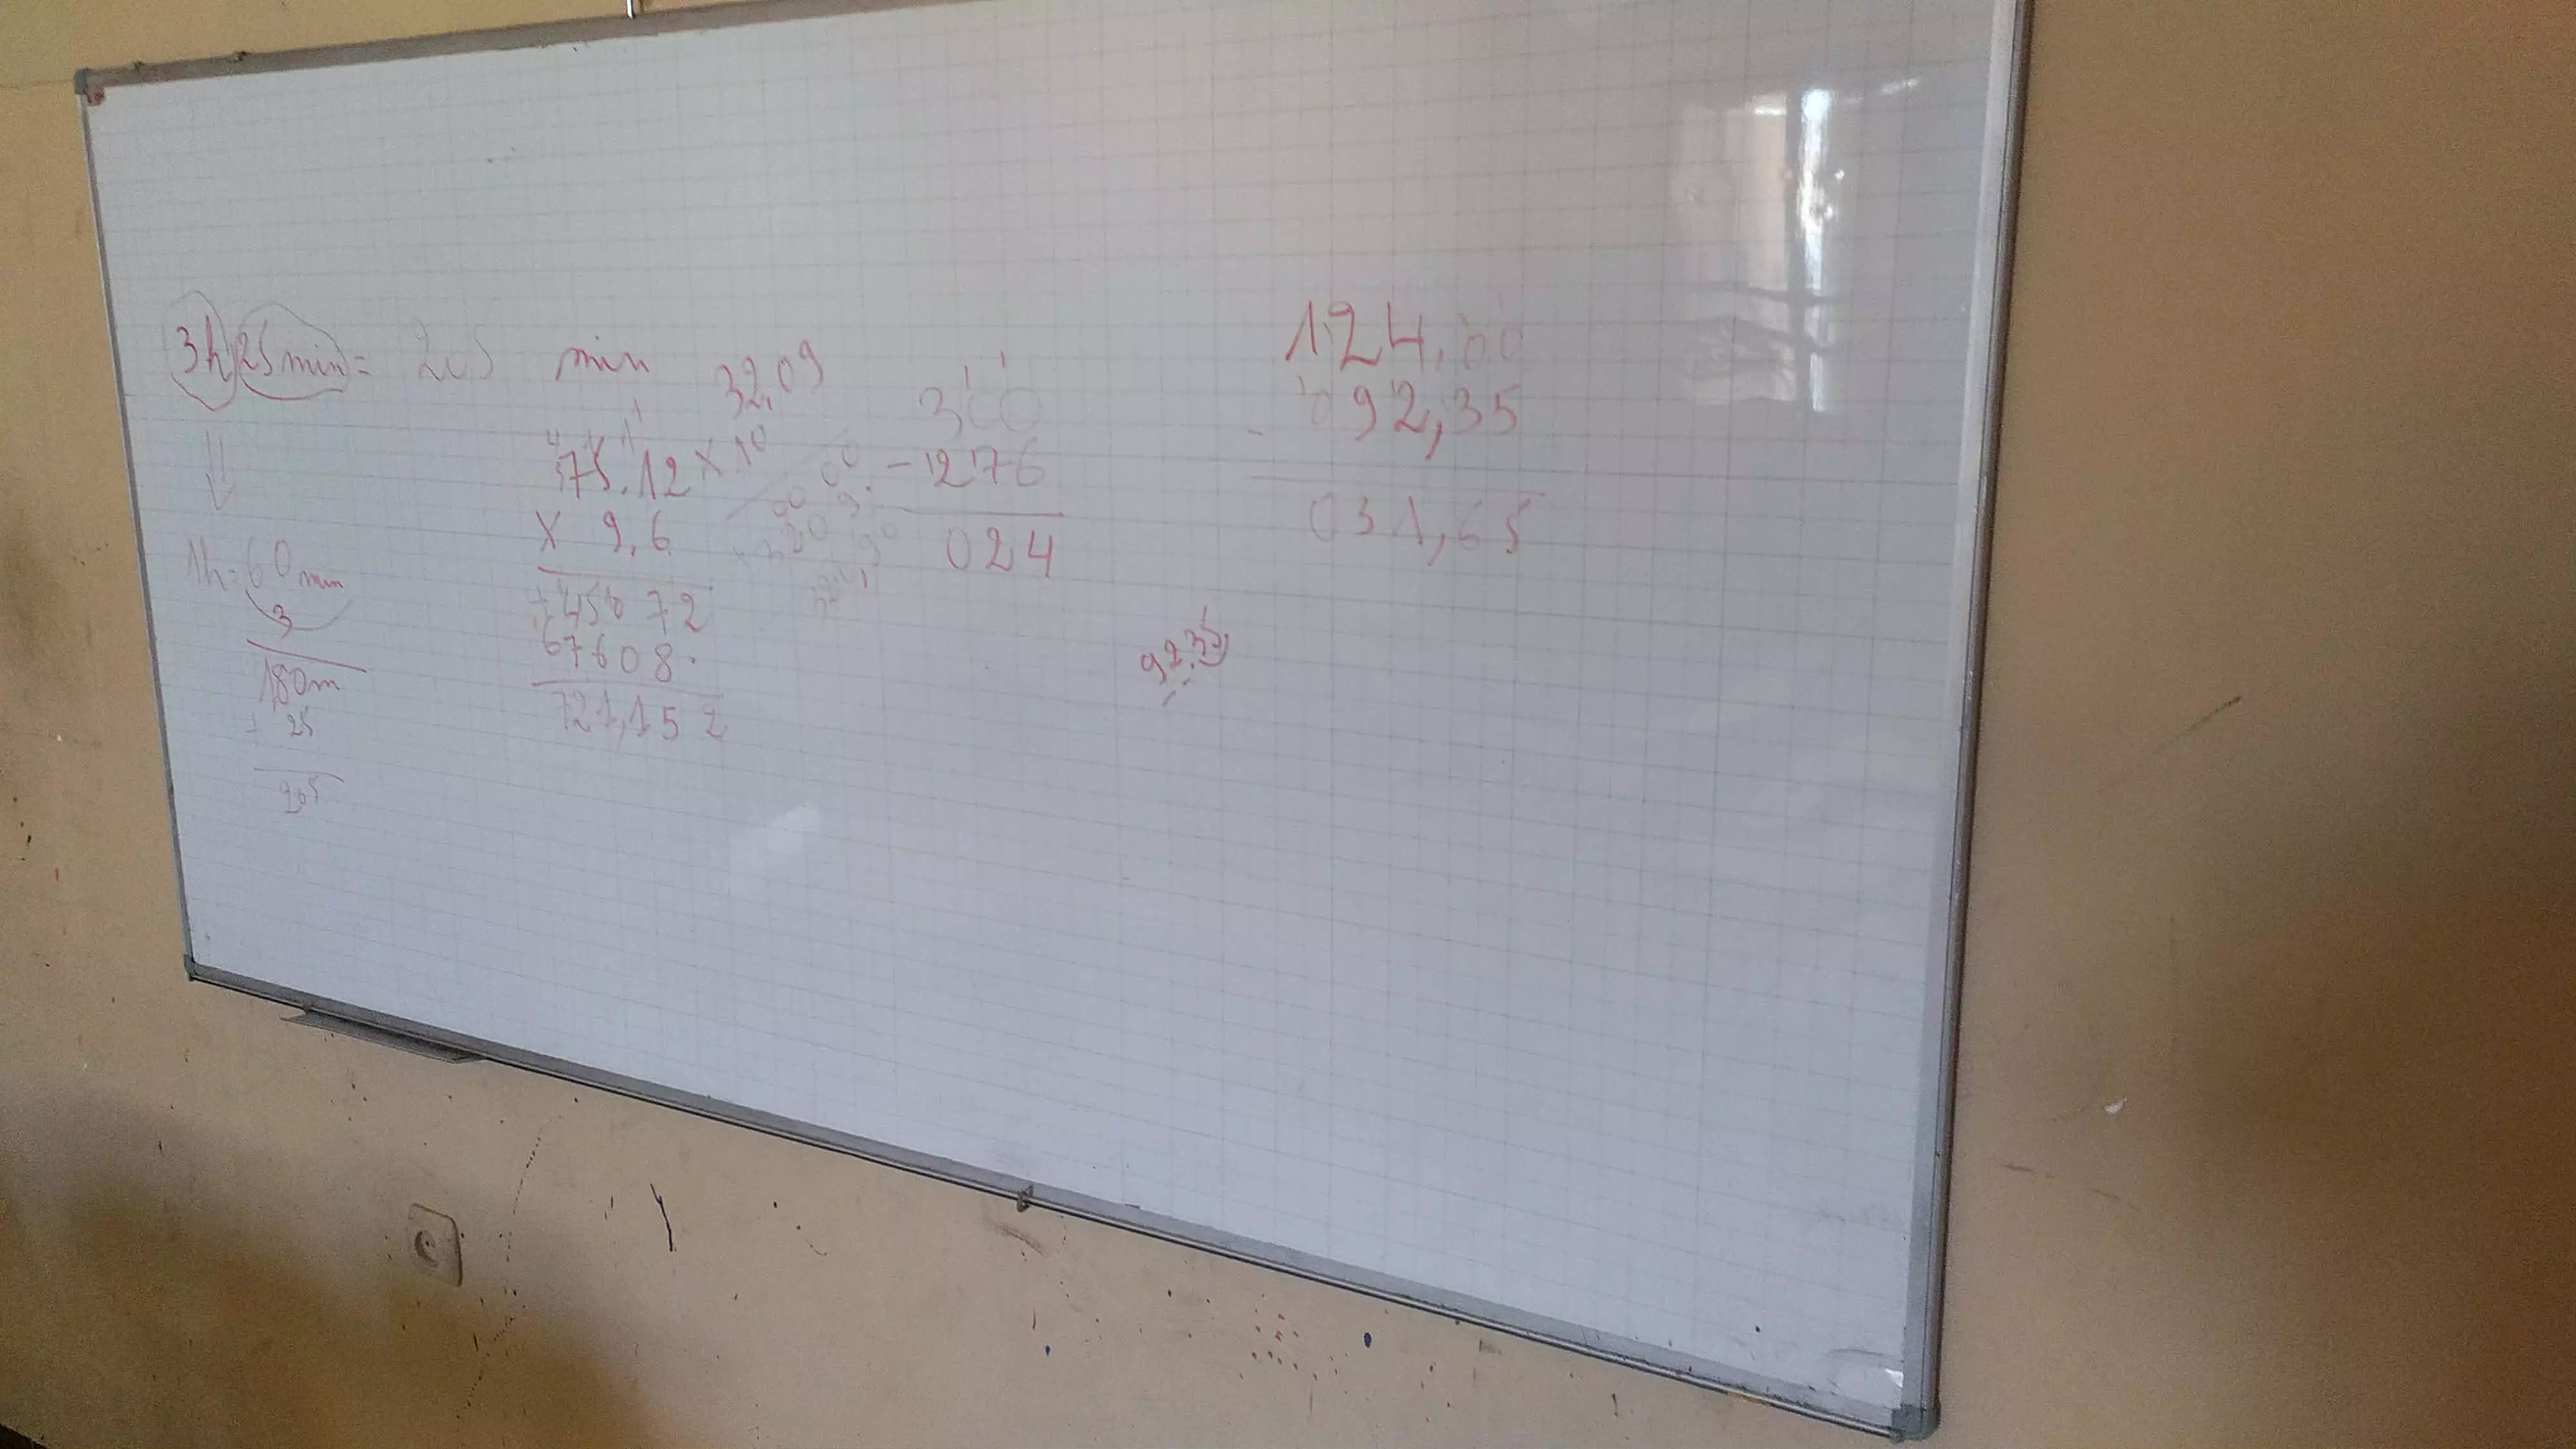 3h 25 min = 205 min
1h = 60 min
3
180m
+ 25
205
32,09
75,12 x 10
x 9,6
45072
67608.
721,152
300
- 276
024
124,00
- 092,35
031,65
92,35